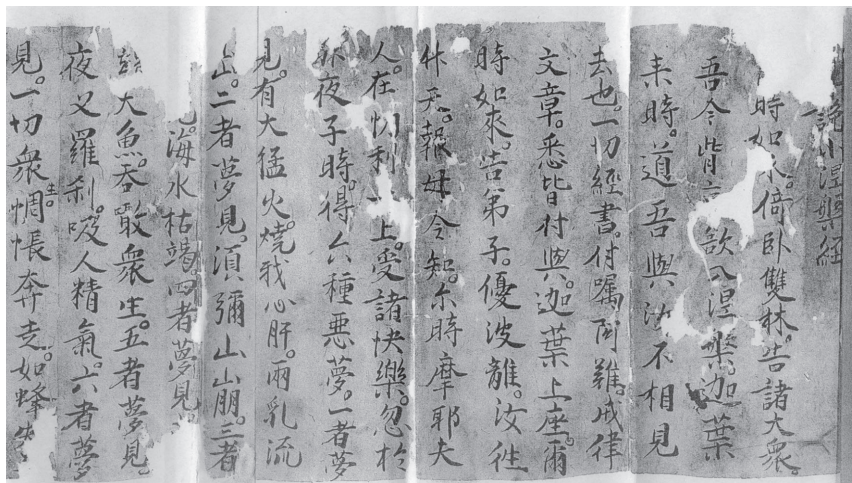 說小涅槃経
時如來。倚卧雙林。告諸大衆。
吾今背 欲入涅槃。迦葉
来時。道吾與汝不相見
去也。一切經書。付嘱阿難。戒律
文章。悉皆付與。迦葉上座。爾
時如來。告弟子。優波離。汝往
升天。報母令知。尒時摩耶夫
人。在忉利 上。受諸快樂。忽於
夜子時。得六種悪夢。一者夢
見。有大猛火。燒我心肝。兩乳流
出。二者夢見。湏彌山崩。三者
海水枯竭。四者夢見。
大魚。吞噉衆生。五者夢見。
夜叉羅刹。吸人精氣。六者夢
見。一切衆生。惆悵奔走。如蜂